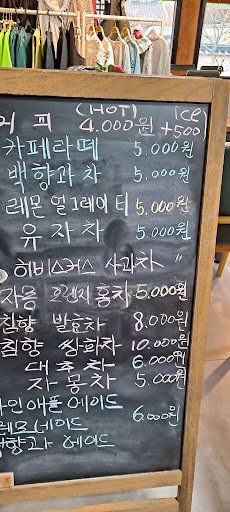 (HOT) ice
커피 4.000원 +500
카페라떼 5.000원
백향과차 5.000원
레몬 얼그레이 티 5.000원
유자차 5.000원
히비스커스 사과차 "
자몽 오렌지 홍차 5.000원
침향 발효차 8.000원
침향 쌍화차 10.000원
대추차 6.000원
자몽차 5.000원
파인애플에이드
레몬에이드 6.000원
백향과 에이드